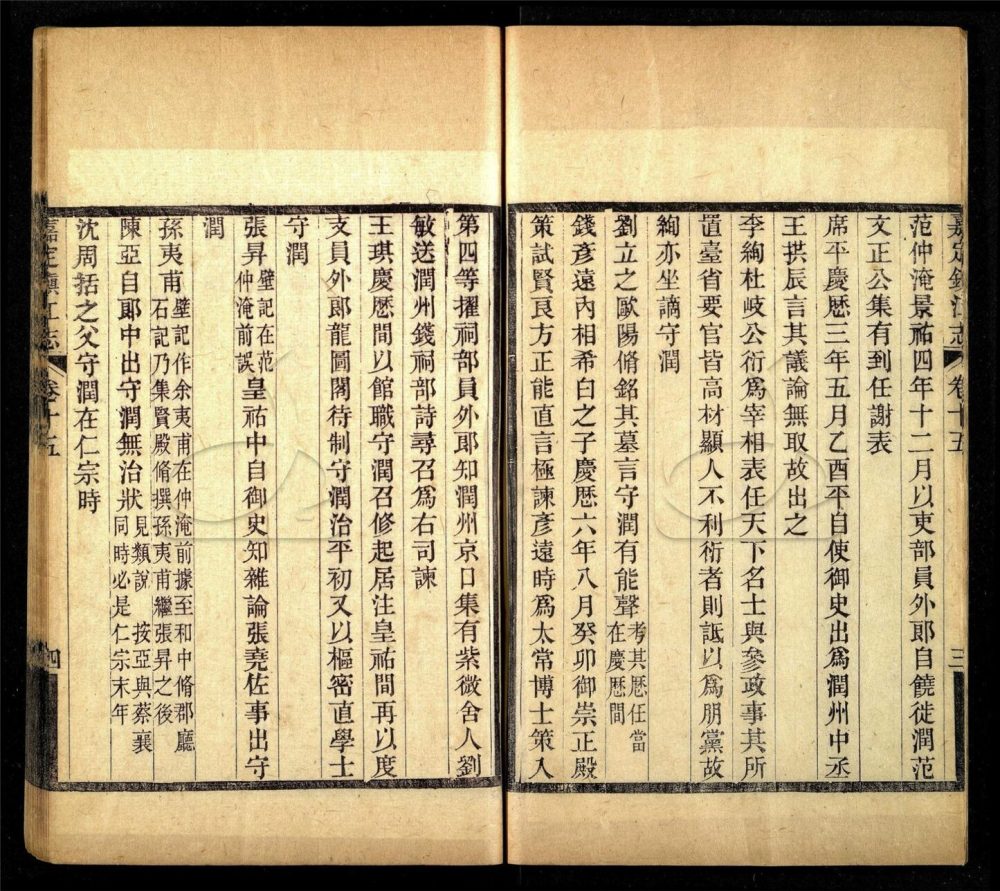 嘉定鎮江志 卷十五 三
范仲淹景祐四年十二月以吏部員外郎自饒徙潤范
文正公集有到任謝表
席平慶歷三年五月乙酉平自使御史出爲潤州中丞
王拱辰言其議論無取故出之
李絢杜岐公衍爲宰相表任天下名士與參政事其所
置臺省要官皆高材顯人不利衍者則詆以爲朋黨故
絢亦坐謫守潤
劉立之歐陽脩銘其墓言守潤有能聲考其歷任當在慶歷間
錢彥遠內相希白之子慶歷六年八月癸卯御崇正殿
策試賢良方正能直言極諫彥遠時爲太常博士策入
第四等擢祠部員外郎知潤州京口集有紫微舍人劉
敏送潤州錢祠部詩尋召爲右司諫
王琪慶歷間以館職守潤召修起居注皇祐間再以度
支員外郎龍圖閣待制守潤治平初又以樞密直學士
守潤
張昇壁記在范仲淹前誤皇祐中自御史知雜論張堯佐事出守
潤
孫夷甫壁記作余夷甫在仲淹前據至和中脩郡廳石記乃集賢殿脩撰孫夷甫繼張昇之後
陳亞自郎中出守潤無治狀見類說 按亞與蔡襄同時必是仁宗末年
沈周括之父守潤在仁宗時
嘉定鎮江志 卷十五 四